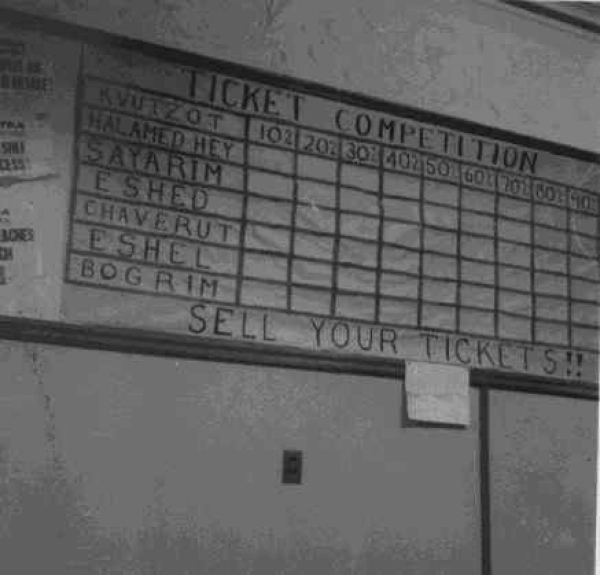 TICKET COMPETITION
KVUTZOT 10% 20% 30% 40% 50% 60% 70% 80% 90%
HALAMED HEY
SAYARIM
ESHED
CHAVERUT
ESHEL
BOGRIM
SELL YOUR TICKETS!!